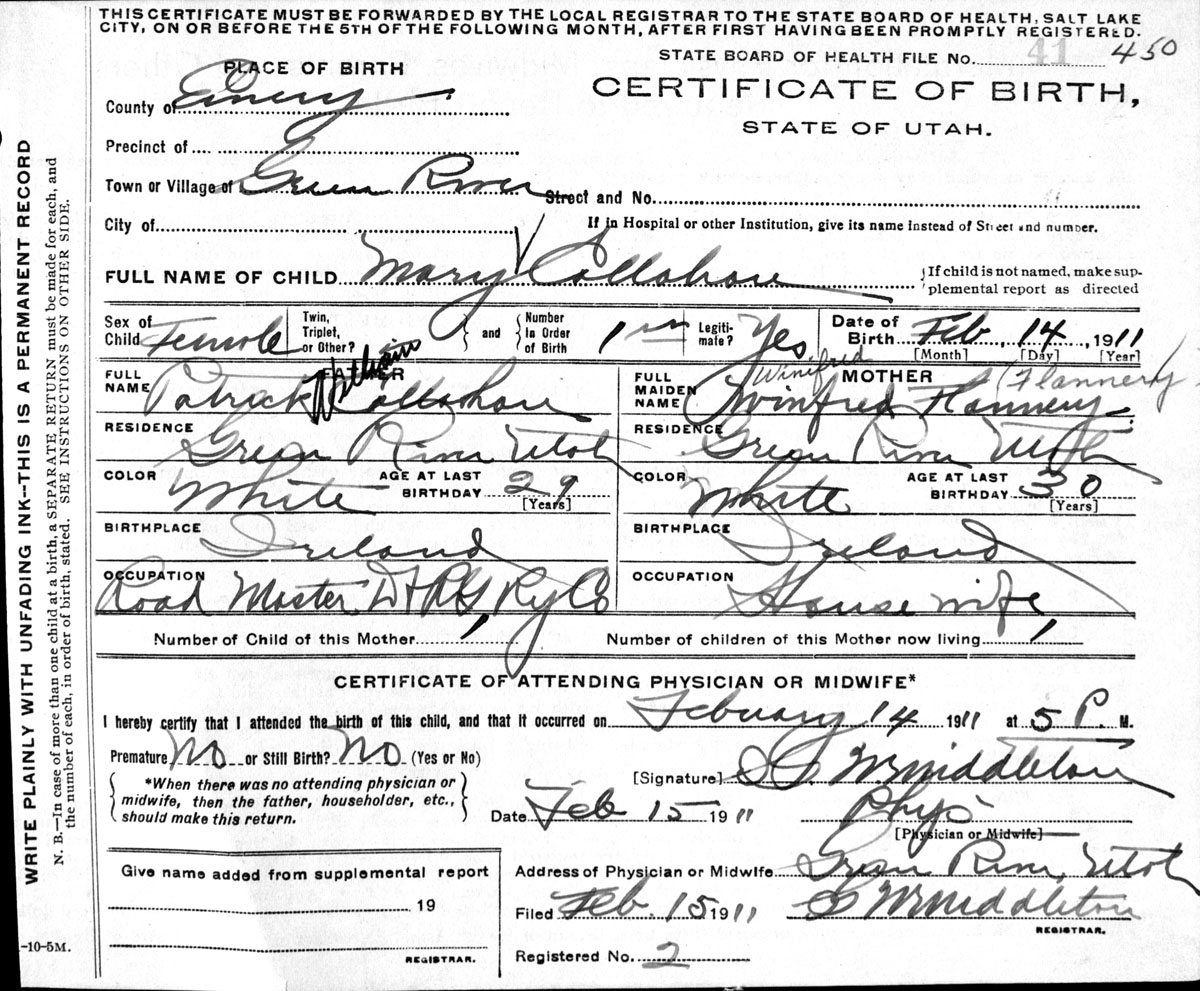 THIS CERTIFICATE MUST BE FORWARDED BY THE LOCAL REGISTRAR TO THE STATE BOARD OF HEALTH, SALT LAKE
CITY, ON OR BEFORE THE 5TH OF THE FOLLOWING MONTH, AFTER FIRST HAVING BEEN PROMPTLY REGISTERED.
STATE BOARD OF HEALTH FILE No. 41 450
PLACE OF BIRTH
CERTIFICATE OF BIRTH,
STATE OF UTAH.
County of Emery
Precinct of
Town or Village of Green River Street and No.
City of If in Hospital or other Institution, give its name instead of Street and number.
FULL NAME OF CHILD Mary Collahan
If child is not named, make sup-
plemental report as directed
Sex of Child Female Twin, Triplet, or Other? and Number In Order of Birth 1 Legiti-mate? Yes Date of Birth Feb 14 1911
[Month] [Day] [Year]
FULL NAME FATHER Patrick William Collahan
FULL MAIDEN NAME MOTHER Winfred Flannery Winifred (Flannery
RESIDENCE Green River Utah
RESIDENCE Green River Utah
COLOR White AGE AT LAST BIRTHDAY 29 [Years]
COLOR White AGE AT LAST BIRTHDAY 30 [Years]
BIRTHPLACE Ireland
BIRTHPLACE Ireland
OCCUPATION Road Master D+RG Ry Co
OCCUPATION House wife
Number of Child of this Mother 1 Number of children of this Mother now living 1
CERTIFICATE OF ATTENDING PHYSICIAN OR MIDWIFE*
I hereby certify that I attended the birth of this child, and that it occurred on Febuary 14 1911 at 5 P. M.
Premature No or Still Birth? No (Yes or No)
*When there was no attending physician or
midwife, then the father, householder, etc.,
should make this return.
[Signature] Middleton
Date Feb 15 1911 Phys
[Physician or Midwife]
Address of Physician or Midwife Green River, Utah
Filed Feb. 15 1911 Middleton
REGISTRAR.
Registered No. 2
Give name added from supplemental report
19
REGISTRAR.
WRITE PLAINLY WITH UNFADING INK--THIS IS A PERMANENT RECORD
N. B.—In case of more than one child at a birth, a SEPARATE RETURN must be made for each, and
the number of each, in order of birth, stated. SEE INSTRUCTIONS ON OTHER SIDE.
-10-5M.